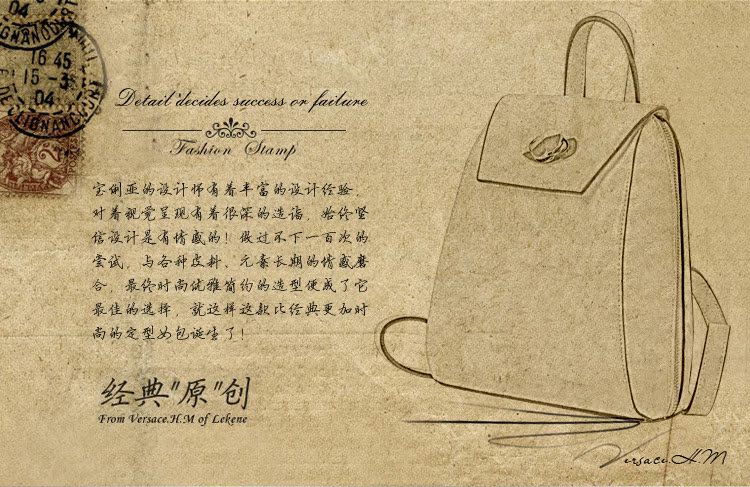 04
IGNANCOURT
16 45
15 - 3
04
DE CLIGNANCOURT
Detail decides success or failure
Fashion Stamp
宝俐亚的设计师有着丰富的设计经验,
对着视觉呈现有着很深的造诣, 始终坚
信设计是有情感的! 做过不下一百次的
尝试, 与各种皮料、元素长期的情感磨
合, 最终时尚优雅简约的造型便成了它
最佳的选择, 就这样这款比经典更加时
尚的定型女包诞生了!
经典"原"创
From Versace.H.M of Lekene
Versace.H.M